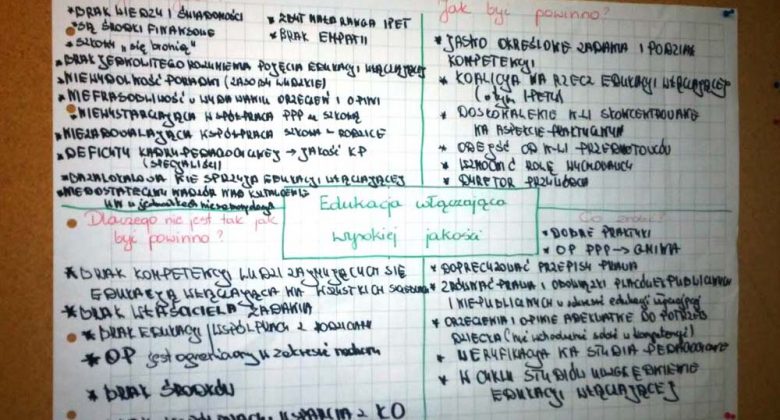 * BRAK WIEDZY I ŚWIADOMOŚCI
* SĄ ŚRODKI FINANSOWE
* SZKOŁY „SIĘ BRONIĄ"
* ZBYT MAŁA RANGA IPET
* BRAK EMPATII
* BRAK JEDNOLITEGO ROZUMIENIA POJĘCIA EDUKACJI WŁĄCZAJĄCEJ
* NIEWYDOLNOŚĆ PORADNI (ZASOBY LUDZKIE)
* NIEFRASOBLIWOŚĆ W WYDAWANIU ORZECZEŃ I OPINII
* NIEWYSTARCZAJĄCA WSPÓŁPRACA PPP W SZKOŁĄ
* NIEZADOWALAJĄCA WSPÓŁPRACA SZKOŁA - RODZICE
* DEFICYTY KADRY PEDAGOGICZNEJ → JAKOŚĆ KP
(SPECJALIŚCI)
* BAZA LOKALOWA NIE SPRZYJA EDUKACJI WŁĄCZAJĄCEJ
* NIEDOSTATECZNY NADZÓR NAD KSZTAŁCENIEM
Jak być powinno?
* JASNO OKREŚLONE ZADANIA I PODZIAŁ
KOMPETENCJI
* KOALICJA NA RZECZ EDUKACJI WŁĄCZAJĄCEJ
(o tym IPETU)
* DOSKONALENIE N-LI SKONCENTROWANE
NA ASPEKCIE PRAKTYCZNYM
* ODEJŚĆ OD N-LI PRZEDMIOTOWCÓW
* WZMOCNIĆ ROLĘ WYCHOWAWCY
* DYREKTOR PRZYWÓDCA
Edukacja włączająca
wysokiej jakości
Dlaczego nie jest tak jak
być powinno?
* BRAK KOMPETENCJI LUDZI ZAJMUJĄCYCH SIĘ
EDUKACJĄ WŁĄCZAJĄCĄ NA WSZYSTKICH
* BRAK WŁAŚCICIELA ZADANIA
* BRAK EDUKACJI / WSPÓŁPRACY Z RODZICAMI
* OP jest ograniczony w zakresie nadzoru
* BRAK ŚRODKÓW
WSPARCIA Z KO
Co zrobić?
* DOBRE PRAKTYKI
* OP PPP → GMINA
* DOPRECYZOWAĆ PRZEPISY PRAWA
* ZRÓWNAĆ PRAWA I OBOWIĄZKI PLACÓWEK PUBLICZNYCH
I NIEPUBLICZNYCH w zakresie edukacji włączającej
* ORZECZENIA I OPINIE ADEKWATNE DO POTRZEB
DZIECKA (nie wchodzić sobie w kompetencje)
* WERYFIKACJA NA STUDIA PEDAGOGICZNE
* W CYKLU STUDIÓW UWZGLĘDNIENIE
EDUKACJI WŁĄCZAJĄCEJ